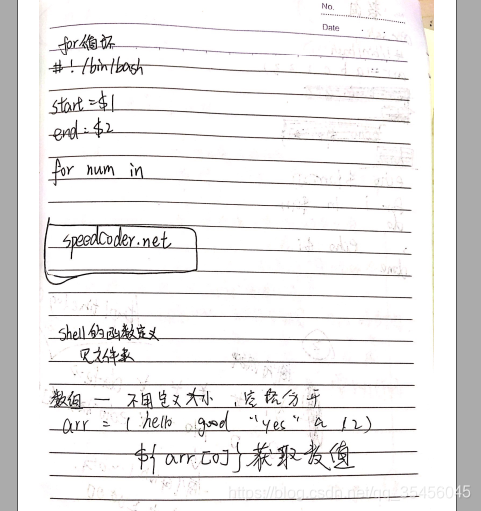 No.
Date
for循环
#!/bin/bash
start=$1
end=$2
for num in
speedcoder.net
shell的函数定义
见文件夹
数组 — 不用定义大小，空格分开
arr = ( hello good "yes" a 12)
${arr[0]}获取数值
https://blog.csdn.net/qq_35456045